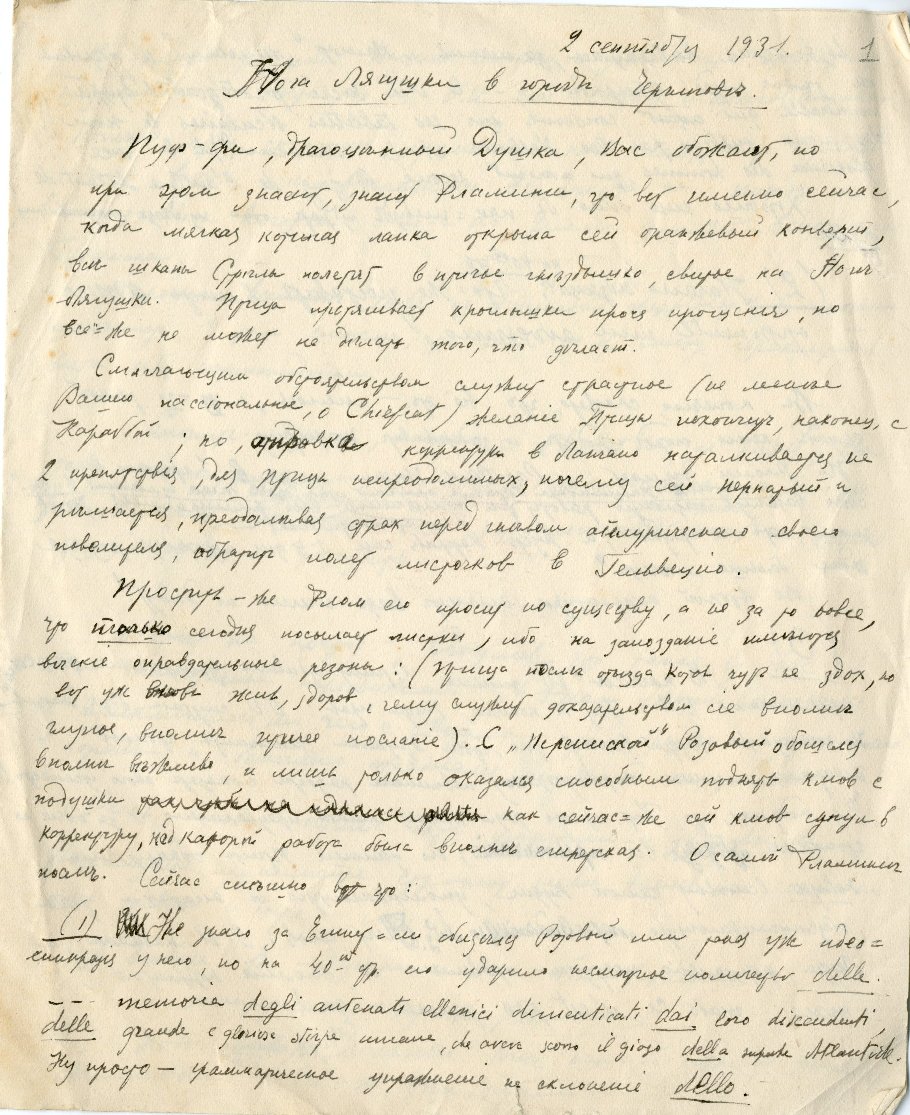 2 сентября 1931. 1
Нога Лягушки в городѣ Черниговѣ.
Пуф-фи, драгоцѣнный Душка, Вас обожает, но
при этом знает, знает Фламинги, что вот именно сейчас,
когда мягкая котиная лапка открыла сей оранжевый конверт,
всѣ Стрѣлы полетят в птичье гнѣздышко, свитое на Ногѣ
Лягушки. Птица протягивает крылышки прося прощенія, но
все=же не может не дѣлать того, что дѣлает.
Смягчающим обстоятельством служит страстное (не менѣе
пассіональное, о Chefcat) желаніе Птицы покончить, наконец, с
Карабой; но, отправка корректуры в Лангано наталкивается на
2 препятствія, для Птицы непреодолимых, почему сей пернатый и
рѣшается, преодолѣвая страх перед гнѣвом своего
повелителя, обратить полет листочков в Гельвецію.
Простить-же Флам его просит по существу, а не за то вовсе,
что только сегодня посылает листки, ибо на запозданіе имѣются
вѣскіе оправдательные резоны: (птица послѣ отъѣзда Котов чуть не здох, но
вот уж вновь жив, здоров, чему служит доказательством сіе вполнѣ
глупое, вполнѣ птичее посланіе). С „ “ Розовый обошелся
вполнѣ вѣжливо, и лишь только оказался способным поднять клюв с
подушки как сейчас=же сей клюв сунул в
корректуру, над которой работа была вполнѣ египетская. О самой Фламингѣ
послѣ. Сейчас спѣшно вот что:
(1) Не знаю за Египет=ли обиделся Розовый или такая уж идео=
синкразія у него, но на 40-ой стр. его ударило несмѣтное количество delle.
--- memoria degli antenati ellenici dimenticati dai loro discendenti,
delle grande e gloriosa stirpe umana, che aveva sotto il giogo della superba Atlantide.
Ну просто — грамматическое упражненіе на склоненіе dello.